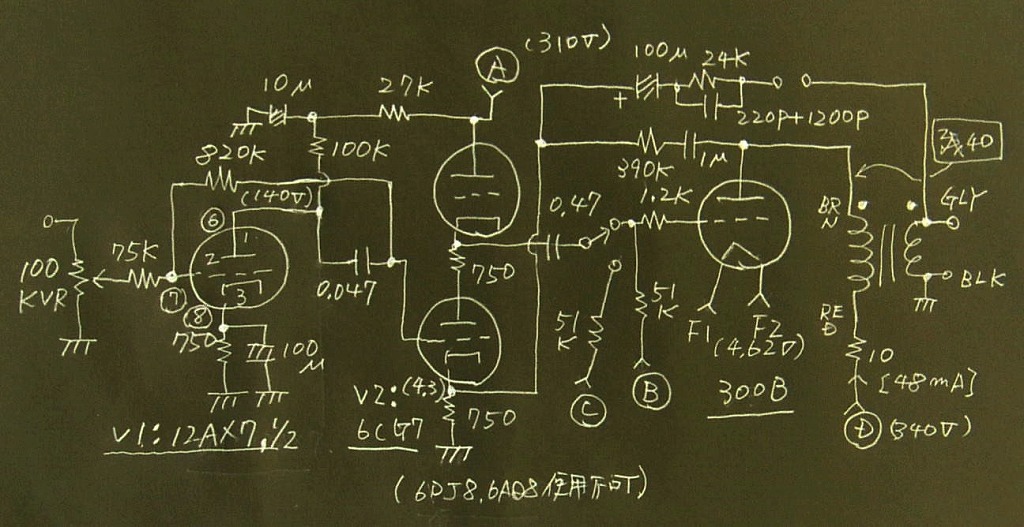 (310V)
A
100μ
24K
+
220P+1200P
10μ
27K
100K
820K
(140V)
390K
1μ
40
1.2K
0.47
BRN
GLY
BLK
6
1
2
3
75K
100
KVR
7
8
0.047
750
750
100μ
51K
51K
F1
F2
(4.62V)
RED
10
[48mA]
V2:
(4.3)
6CG7
750
C
B
300B
D
(340V)
V1: 12AX7, 1/2
(6DJ8, 6AQ8使用不可)